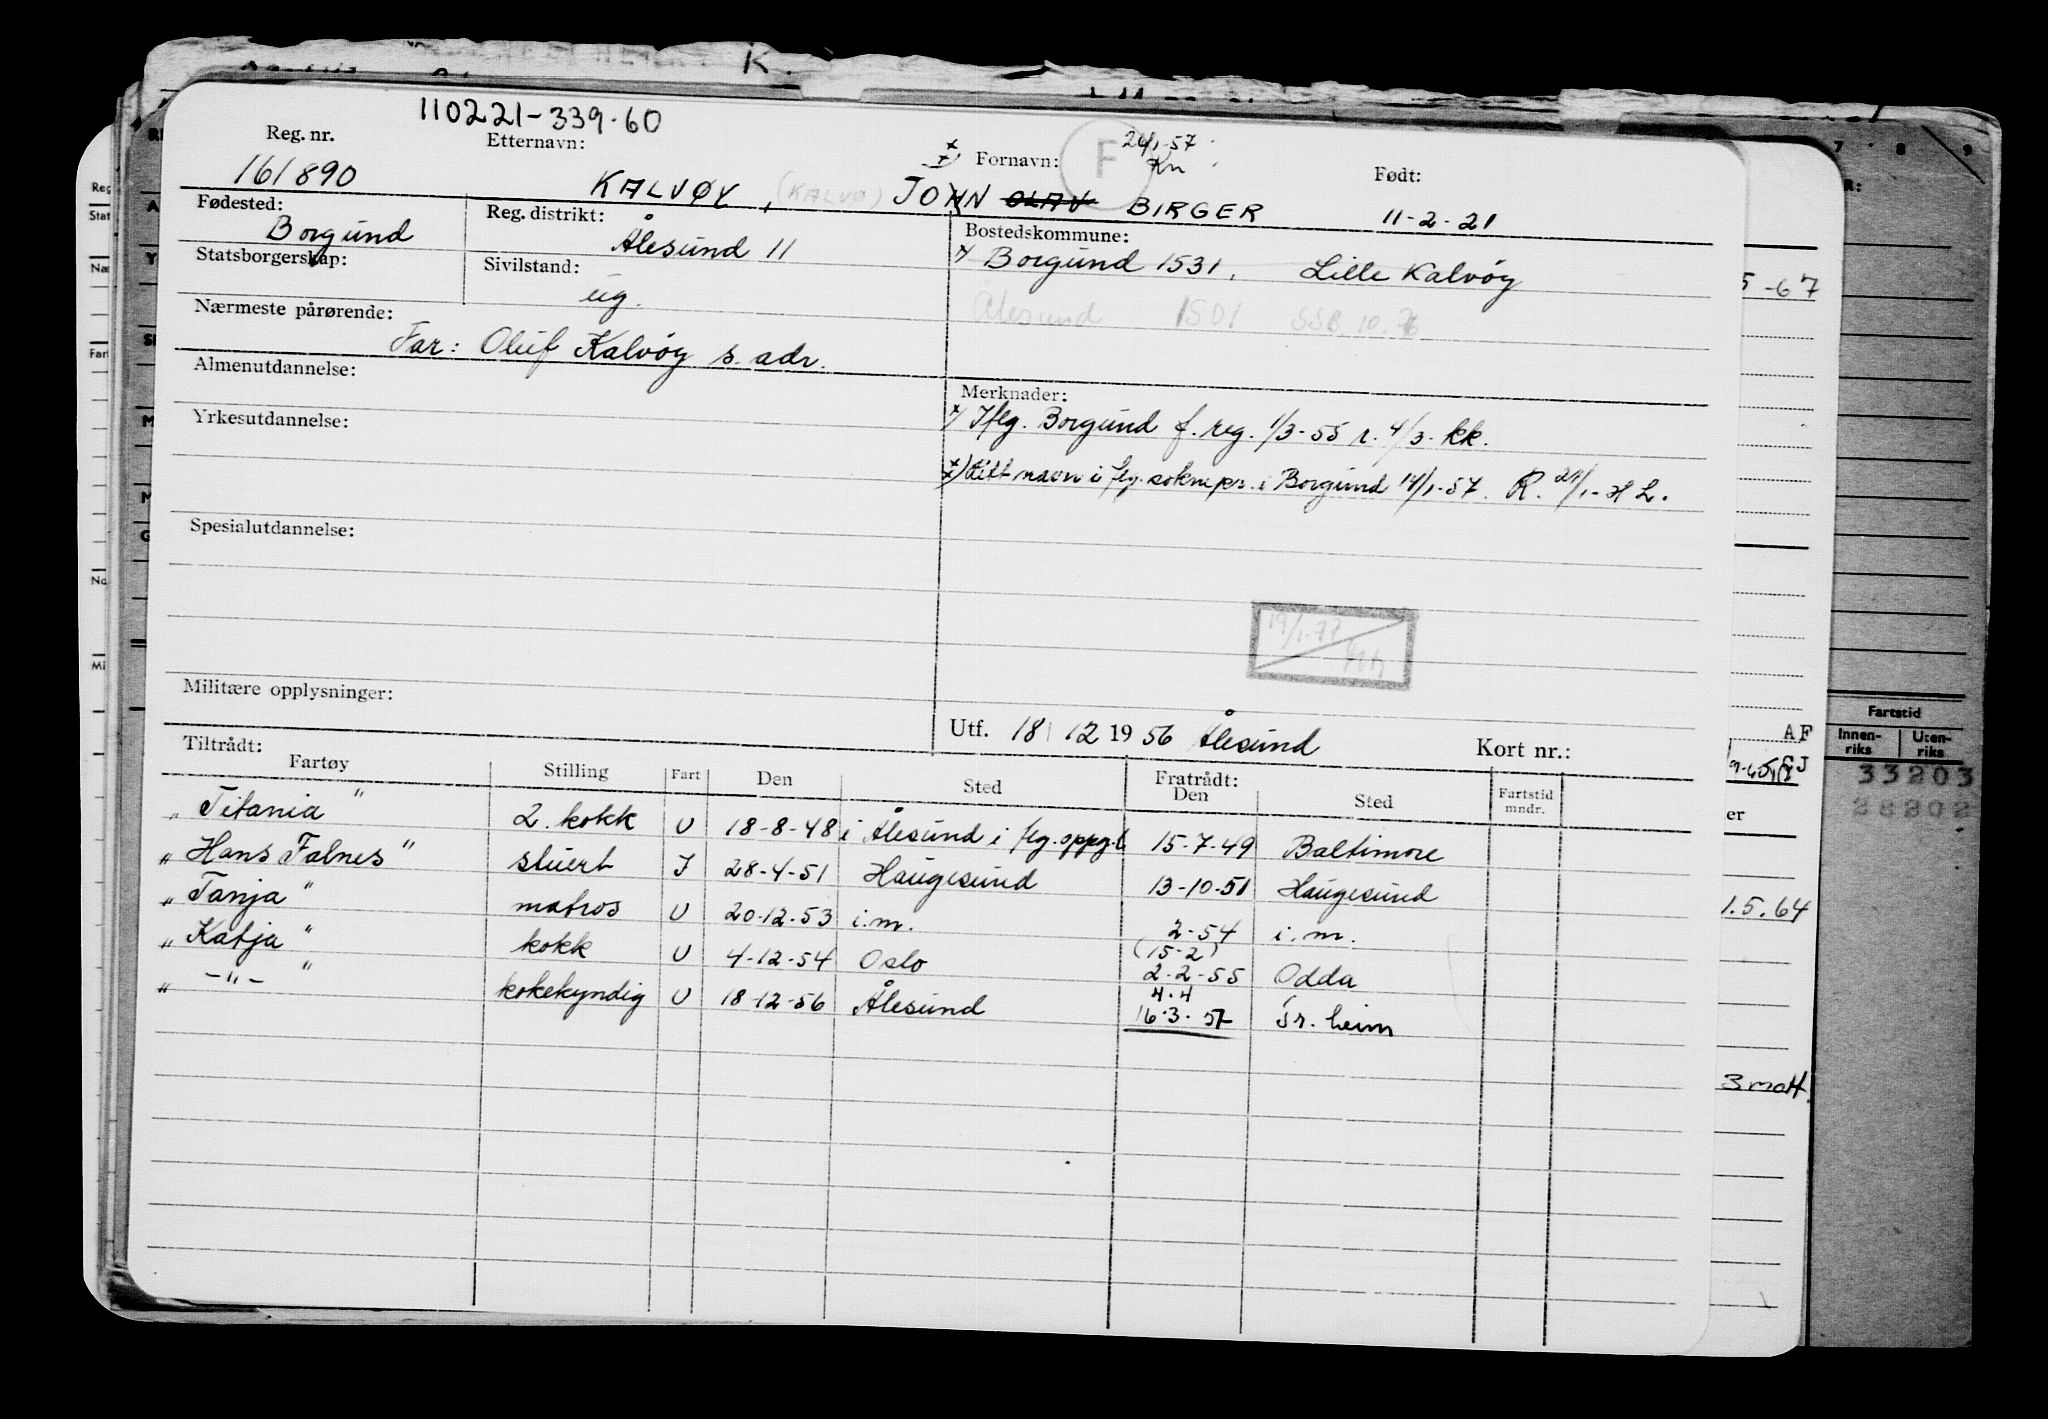 K.
110221-339.60
Reg. nr. Etternavn: Fornavn: F 24/1-57. Født:
161890 KALVØY, (KALVØ) JOHN OLAV BIRGER 11-2-21
Fødested: Reg. distrikt: Bostedskommune:
Borgund Ålesund 11 x/ Borgund 1531, Lille Kalvøy
Statsborgerskap: Sivilstand:
ug. Ålesund 1501 SSB. 10.76
Nærmeste pårørende:
Far: Oluf Kalvøy s. adr.
Almenutdannelse: Merknader:
x/ Iflg. Borgund f. reg. 1/3-55 r. 4/3- kk.
Yrkesutdannelse:
navn i flg. soknepr. i Borgund 14/1-57. R. 24/1- H L.
Spesialutdannelse:
19/1-77
Militære opplysninger:
Utf. 18/12 1956 Ålesund Kort nr.:
Tiltrådt: Fratrådt:
Fartøy Stilling Fart Den Sted Den Sted Fartstid mndr.
„ Titania " 2. kokk U 18-8-48 i Ålesund i flg. oppg. 15-7-49 Baltimore
„ Hans Falnes " stuert I 28-4-51 Haugesund 13-10-51 Haugesund
„ Tanja " matros U 20-12-53 i.m. 2-54 i.m.
(15-2)
„ Katja " kokk U 4-12-54 Oslo 2-2-55 Odda
4.4
„ -"- " kokekyndig U 18-12-56 Ålesund 16.3.57 Tr.heim
7 8 9
5-67
AF
Fartstid
Innenriks Utenriks
33203
28202
er
1.5.64
3 matr.